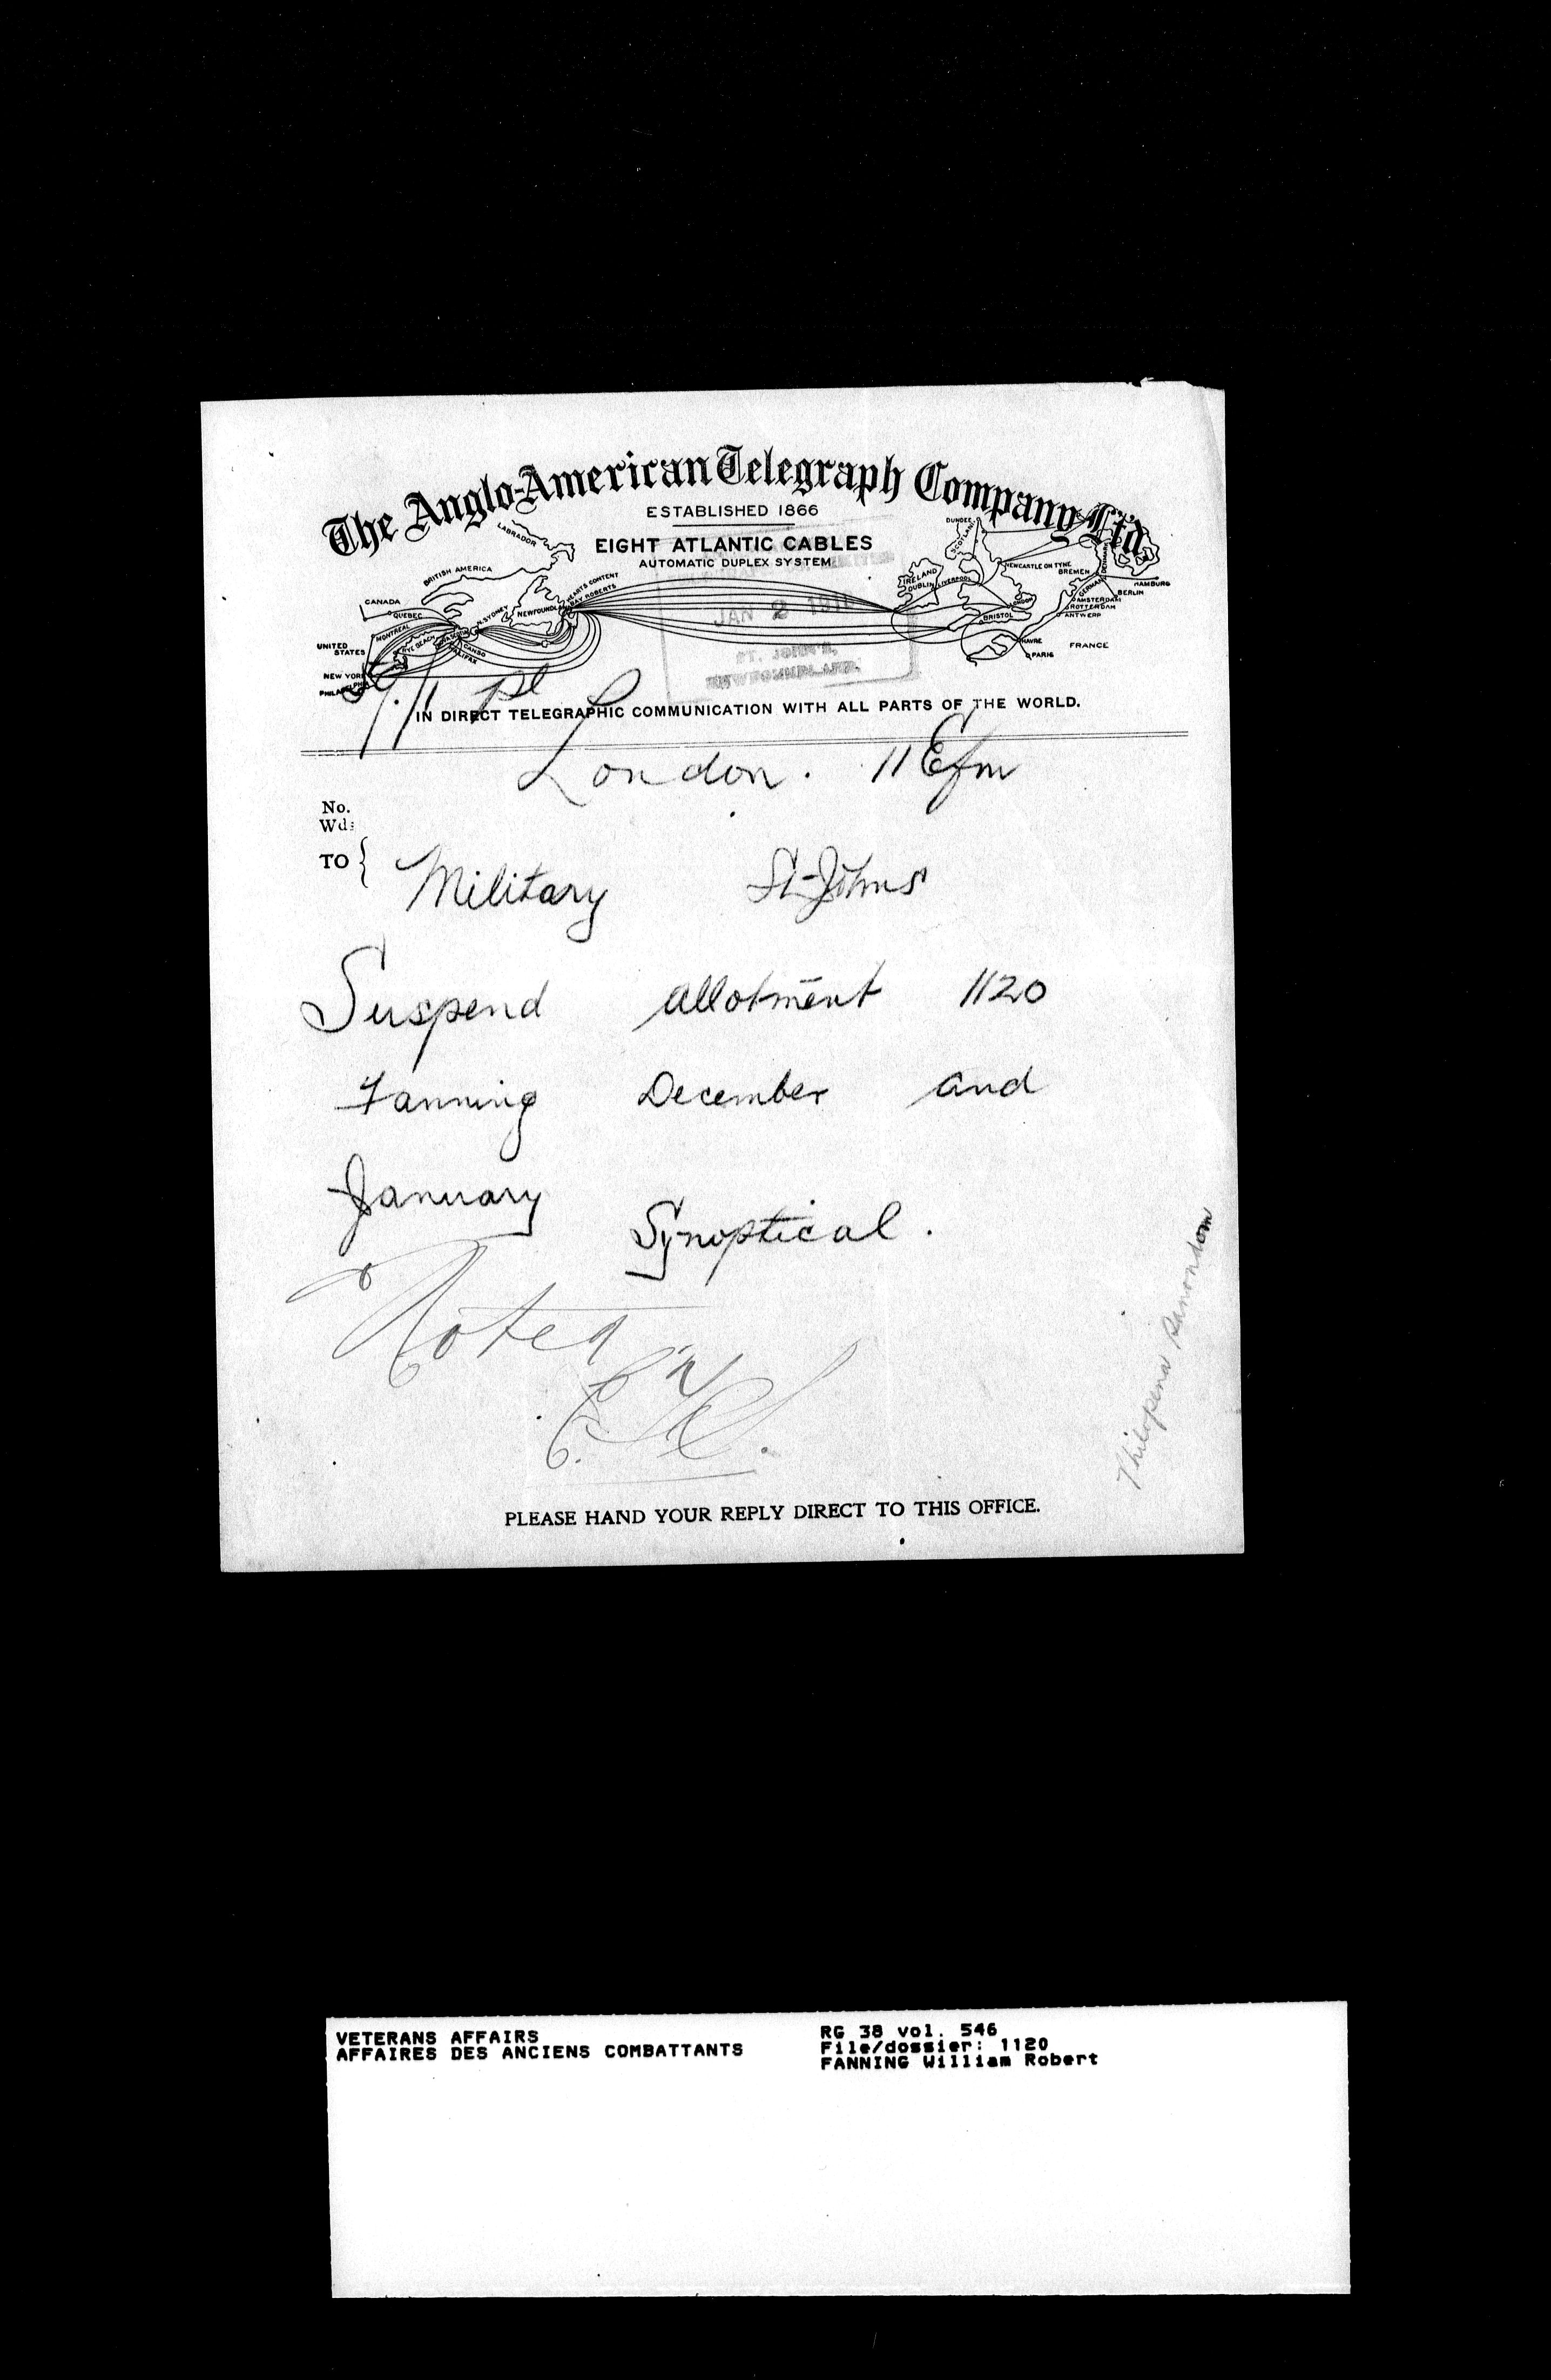 The Anglo-American Telegraph Company Ltd.
ESTABLISHED 1866
EIGHT ATLANTIC CABLES
AUTOMATIC DUPLEX SYSTEM
LABRADOR
BRITISH AMERICA
CANADA
QUEBEC
MONTREAL
UNITED STATES
NEW YORK
RYE BEACH
CANSO
HALIFAX
N. SYDNEY
HEARTS CONTENT
BAY ROBERTS
DUNDEE
SCOTLAND
IRELAND
DUBLIN
LIVERPOOL
NEWCASTLE ON TYNE
BREMEN
HAMBURG
BERLIN
AMSTERDAM
ROTTERDAM
ANTWERP
BRISTOL
HAVRE
PARIS
FRANCE
JAN 2
ST. JOHN'S,
NEWFOUNDLAND.
IN DIRECT TELEGRAPHIC COMMUNICATION WITH ALL PARTS OF THE WORLD.
London. 11 Efm
No.
Wds
TO { Military St Johns
Suspend allotment 1120
Fanning December and
January Synoptical.
Noted
PLEASE HAND YOUR REPLY DIRECT TO THIS OFFICE.
VETERANS AFFAIRS
AFFAIRES DES ANCIENS COMBATTANTS
RG 38 vol. 546
File/dossier: 1120
FANNING William Robert